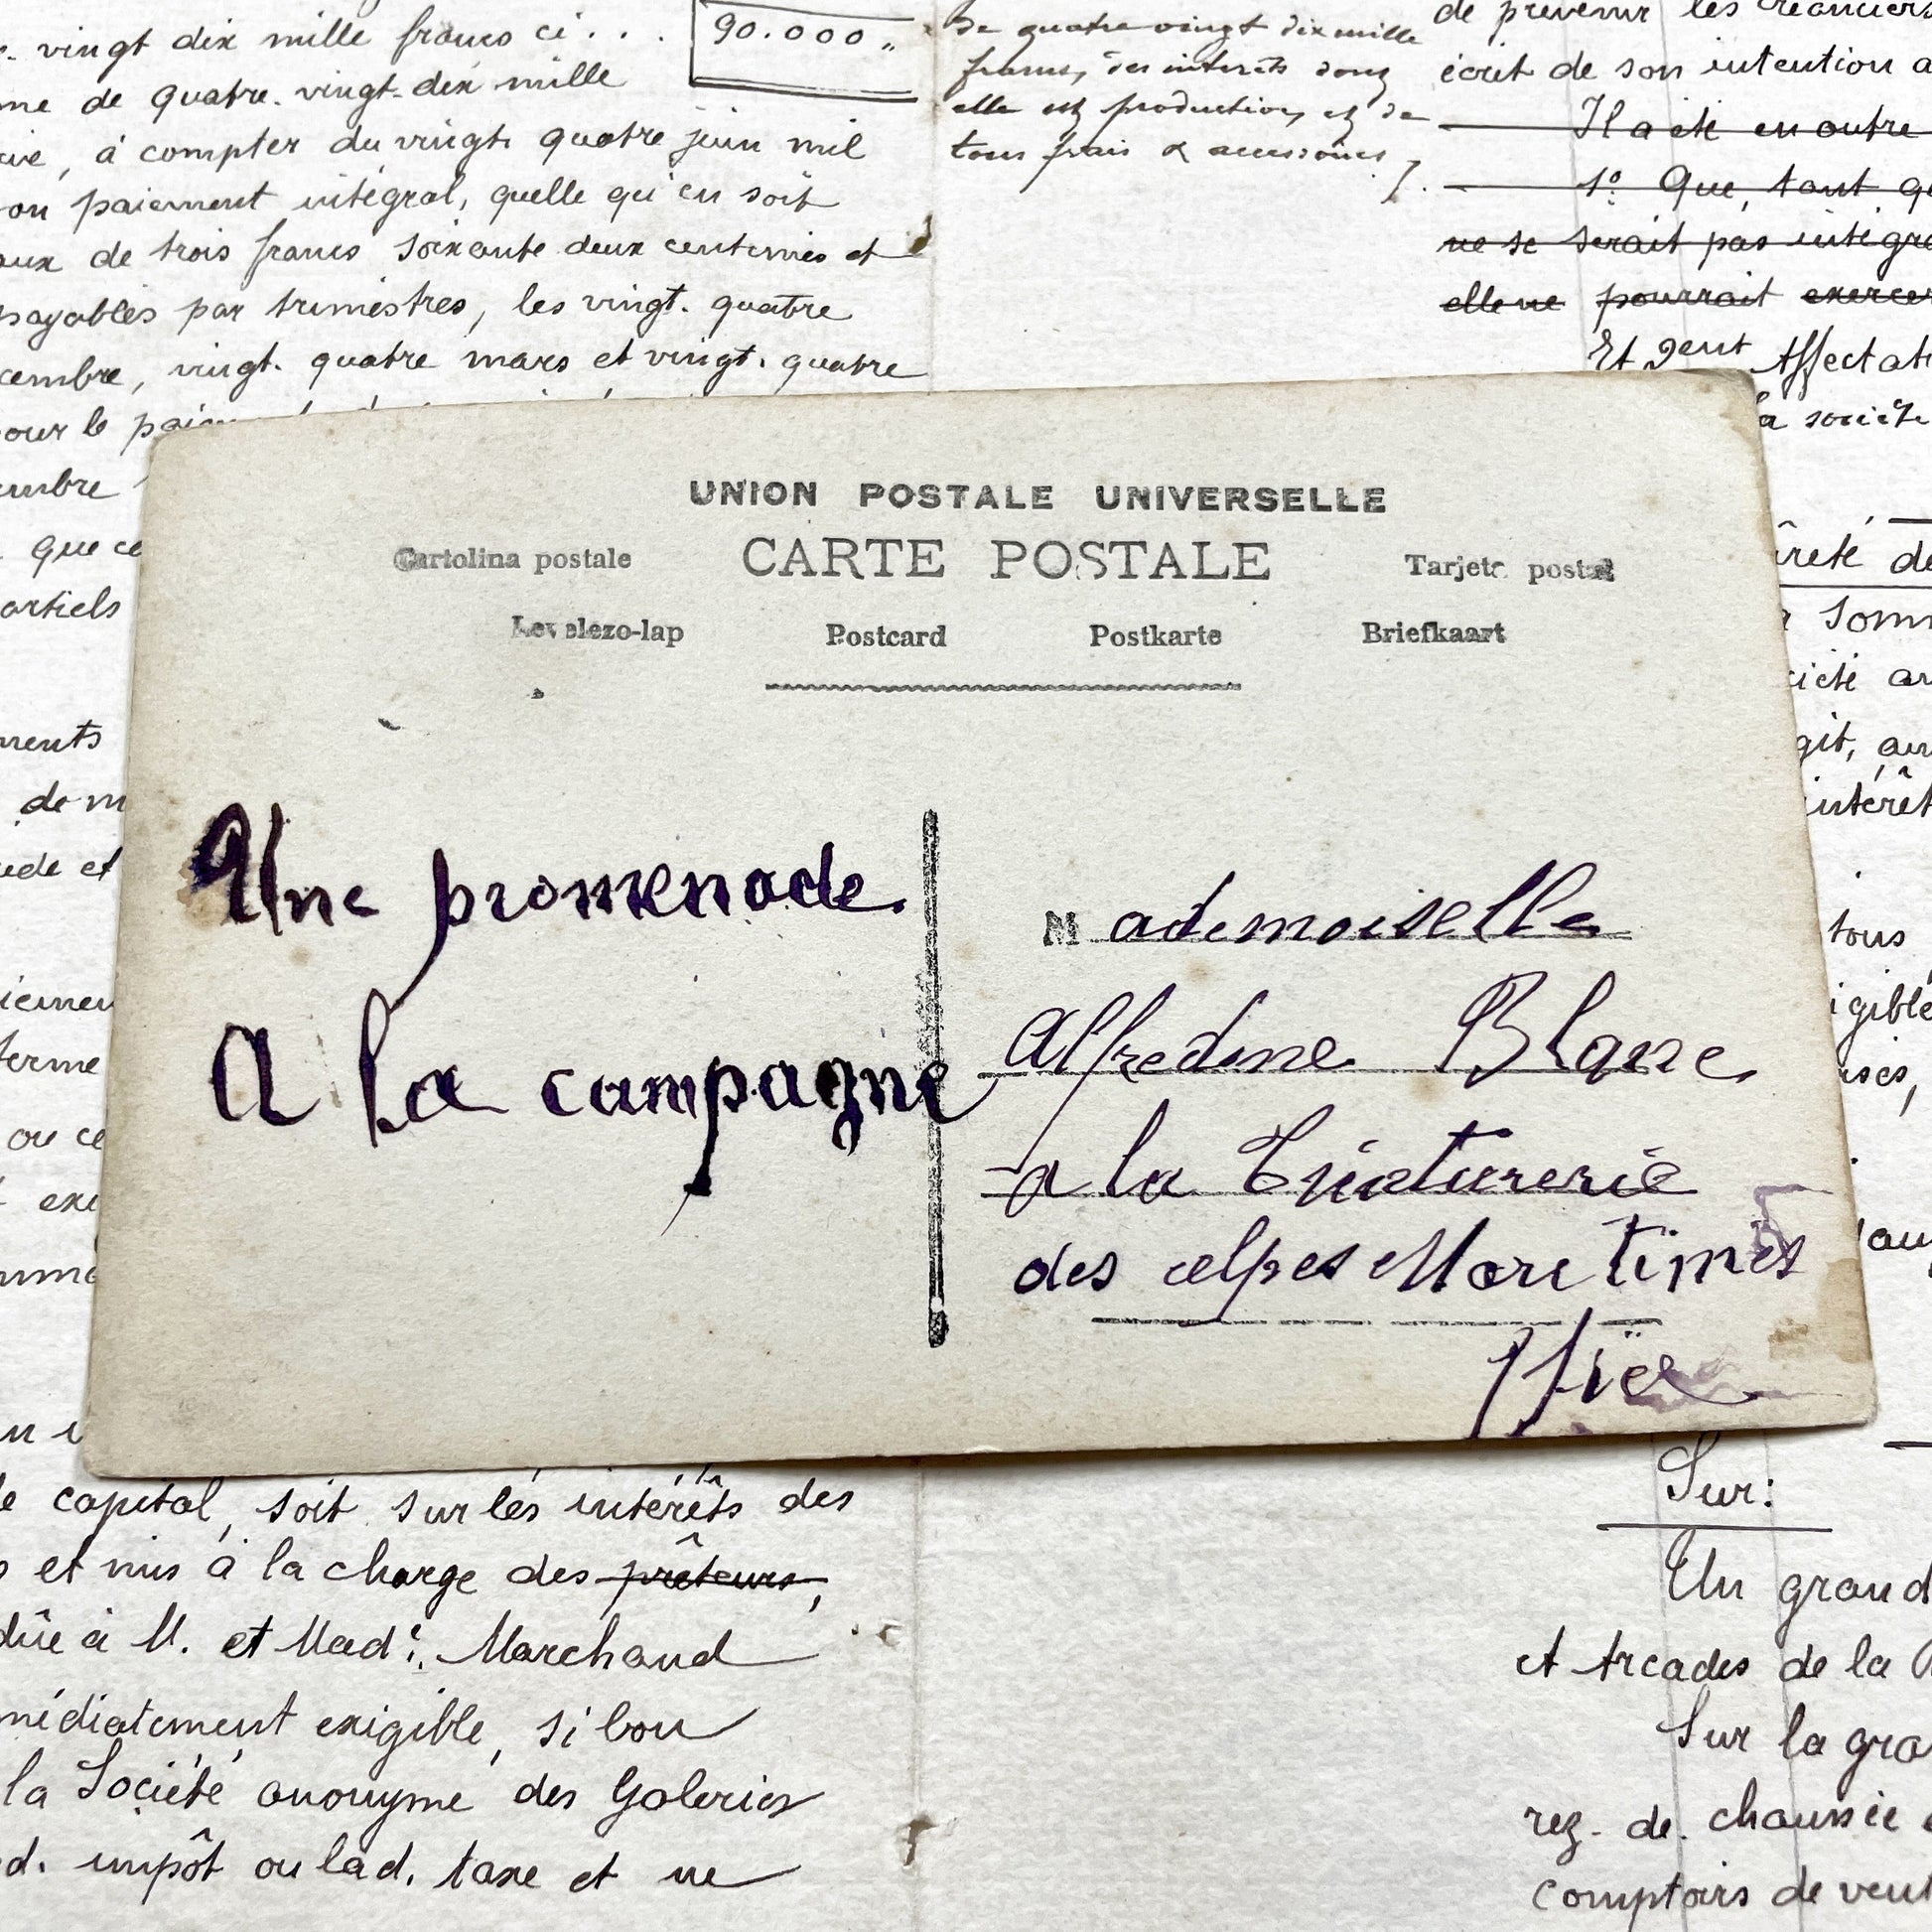 vingt dix mille francs ci . . .
90.000 „
me de quatre. vingt-dix mille
à compter du vingt quatre juin mil
on paiement intégral, quelle qu'en soit
aux de trois francs soixante deux centimes et
payables par trimestres, les vingt. quatre
cembre, vingt. quatre mars et vingt. quatre
our le
embre
que ce
artiels
ments
de m
iemen
terme
ou ce
De quatre vingt dix mille
francs, des intérêts dont
elle est production, et de
tous frais & accessoires
de prévenir les créanciers
écrit de son intention
Il a été en outre
1º Que, tant
ne se serait pas intégra
elle ne pourrait exercer
Et gent Affectat
a société
ûreté de
Som
ciété an
git, au
intérêt
tous
igible
UNION POSTALE UNIVERSELLE
CARTE POSTALE
Cartolina postale
Tarjeta postal
Levelezo-lap Postcard Postkarte Briefkaart
Une promenade
A la campagne
Mademoiselle
Alfredine Blanc
a la Tinturerie
des Alpes Maritimes
Nice
le capital, soit sur les intérêts des
et mis à la charge des prêteurs,
dûe à M. et Made. Marchand
médiatement exigible, si bon
la Société anonyme des Galeries
d. impôt ou lad. taxe et ne
Sur:
Un grand
et Arcades de la
Sur la gra
rez. de. chaussée
comptoirs de vent